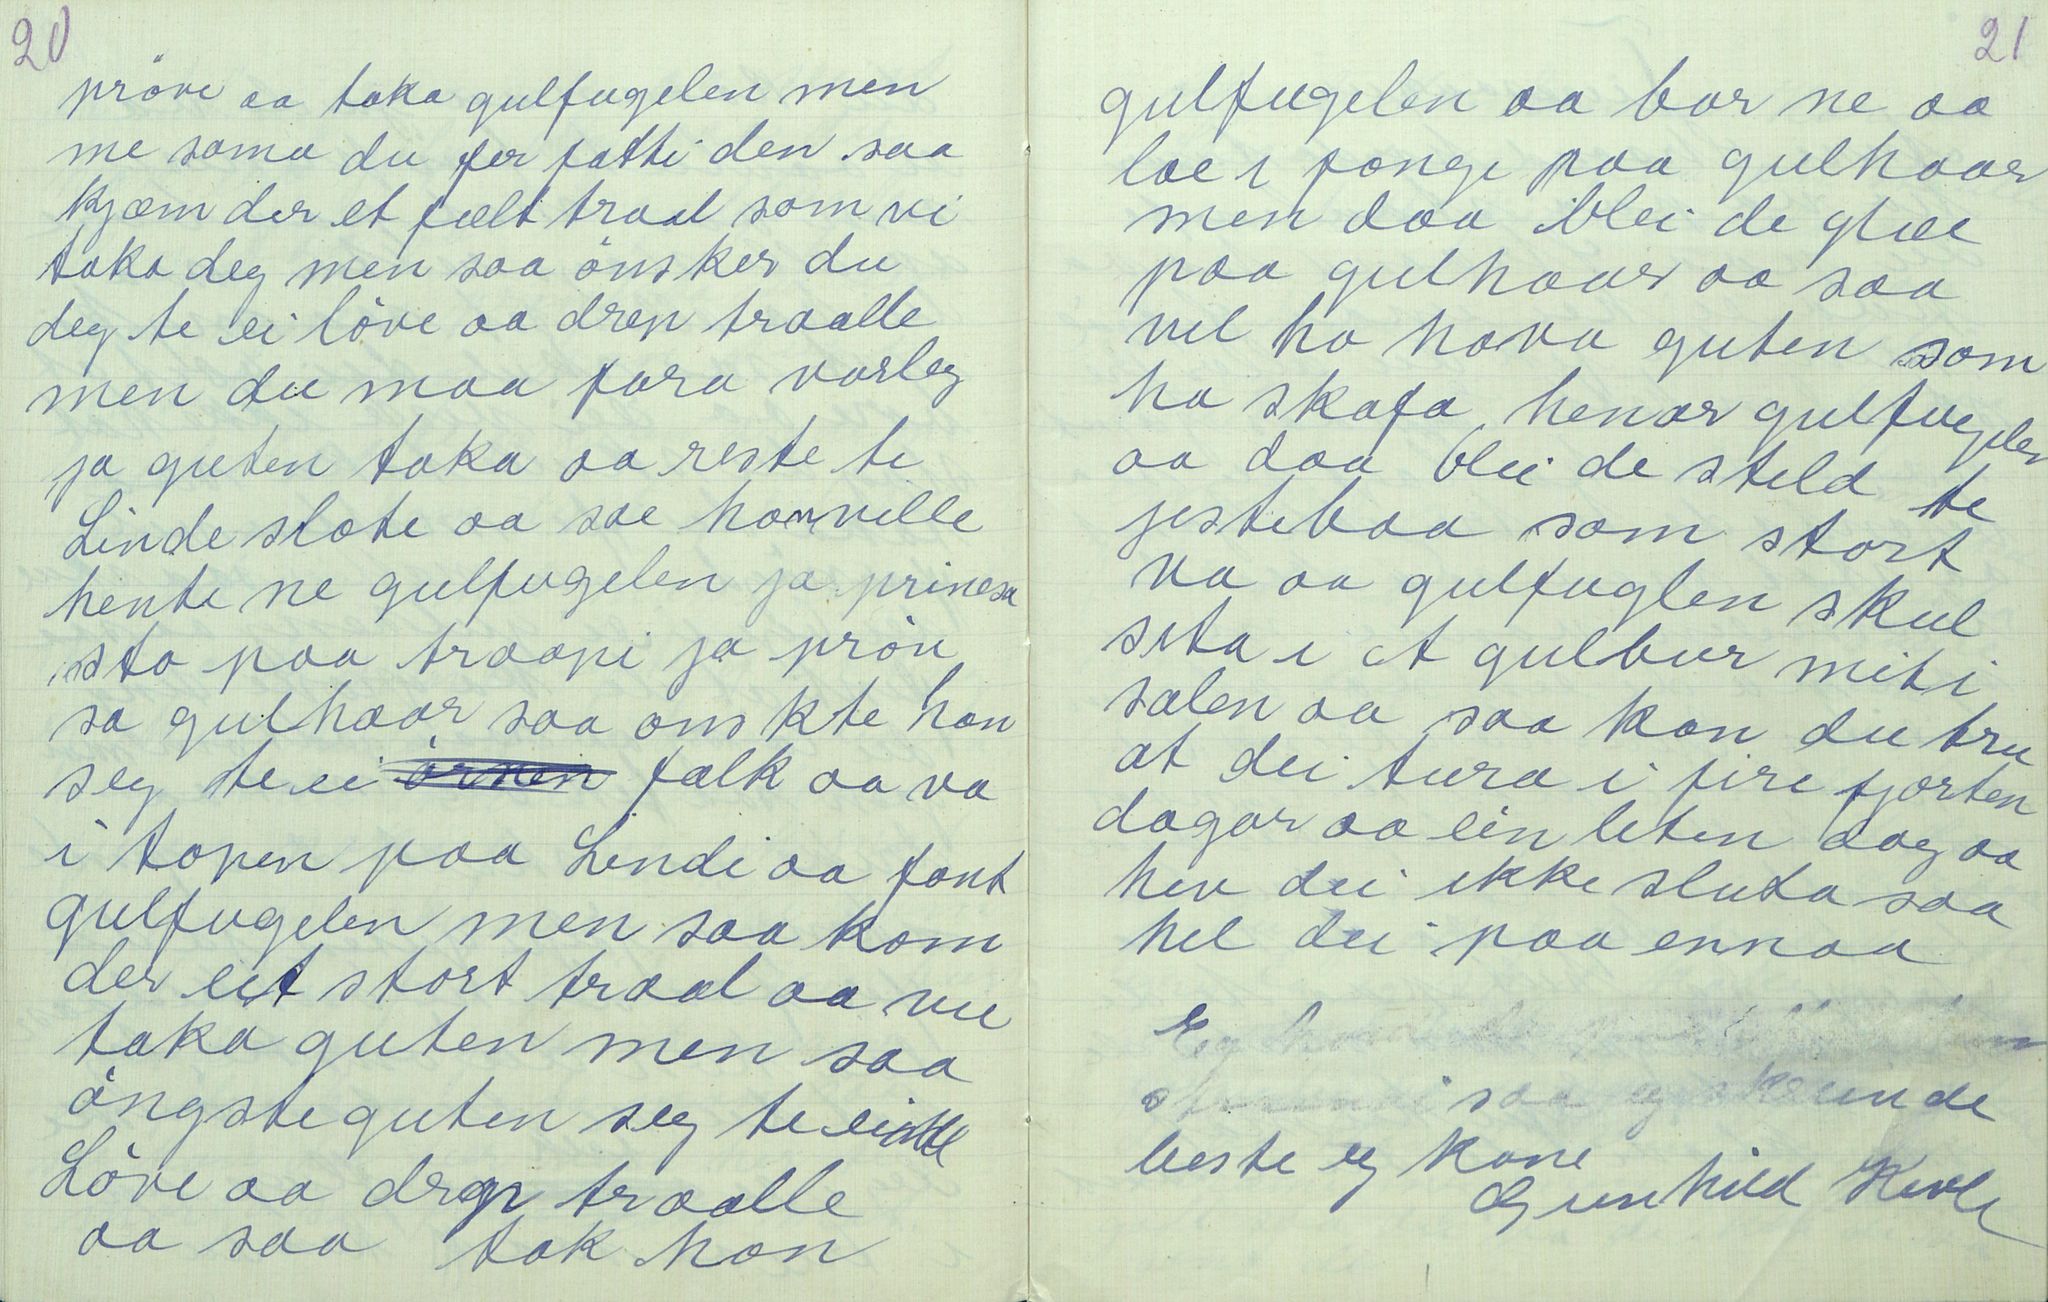 20
pröve aa taka gulfugelen men
me sama du fær fatti den saa
kjæm der et fælt traal som vi
taka deg men saa önsker du
deg te ei löve aa drep traalle
men du maa fara varleg
ja guten taka aa reste te
Linde slote aa sae han ville
hente ne gulfugelen ja prinesa
sto paa traapi ja prön
sa gulhaar saa onskte han
seg te ei örnen falk aa va
i topen paa Lindi aa fant
gulfugelen men saa kom
der eit stort traal aa vil
taka guten men saa
öngste guten seg te ei
Löve aa drap traalle
aa saa tok han
21
gulfugelen aa bar ne aa
lae i fange paa gulhaar
men daa blei de glæe
paa gulhaar aa saa
vil ho hava guten som
ha skafa henar gulfugelen
aa daa blei de steld te
jestebaa som stort
va aa gulfuglen skul
sita i et gulbur mit i
salen aa saa kan du tru
at dei tura i fire fjorten
dagar aa ein liten dag aa
hev dei ikke sluta saa
hel dei paa ennaa
Eg
saa eg
beste eg kane
Gunhild Kivle